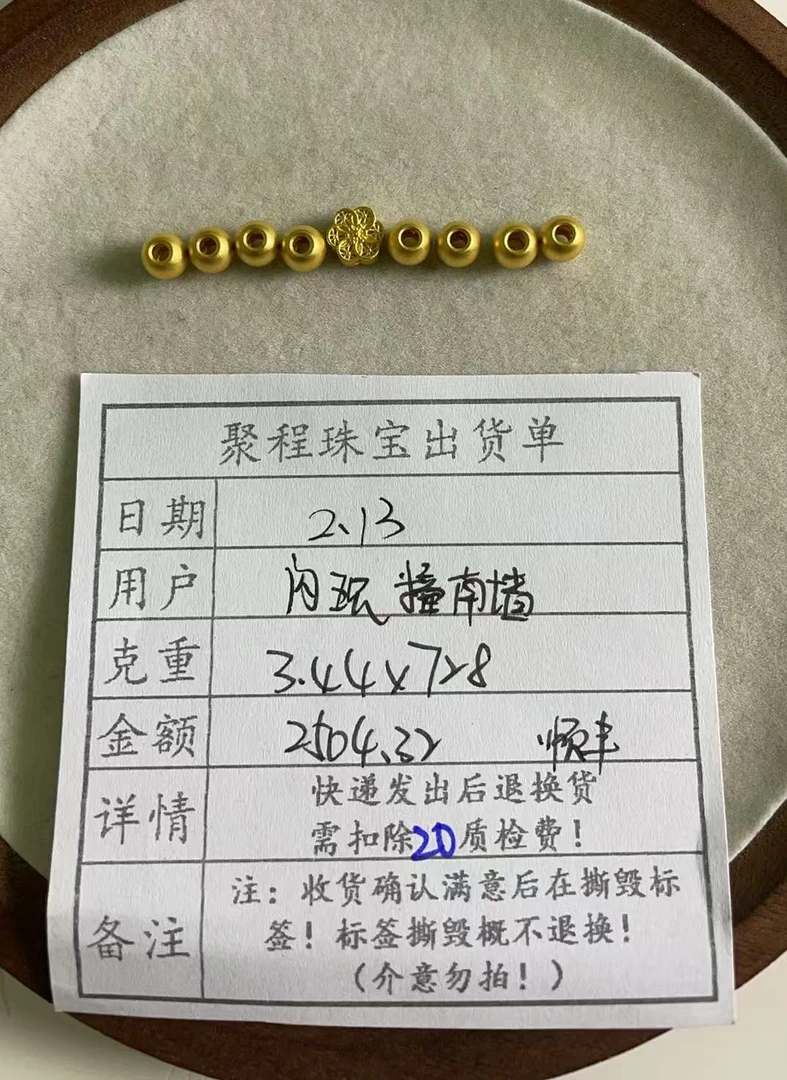 聚程珠宝出货单
日期 2.13
用户 闪现撞南墙
克重 3.44x728
金额 2504.32 顺丰
详情 快递发出后退换货
需扣除20质检费!
备注 注:收货确认满意后在撕毁标
签!标签撕毁概不退换!
(介意勿拍!)